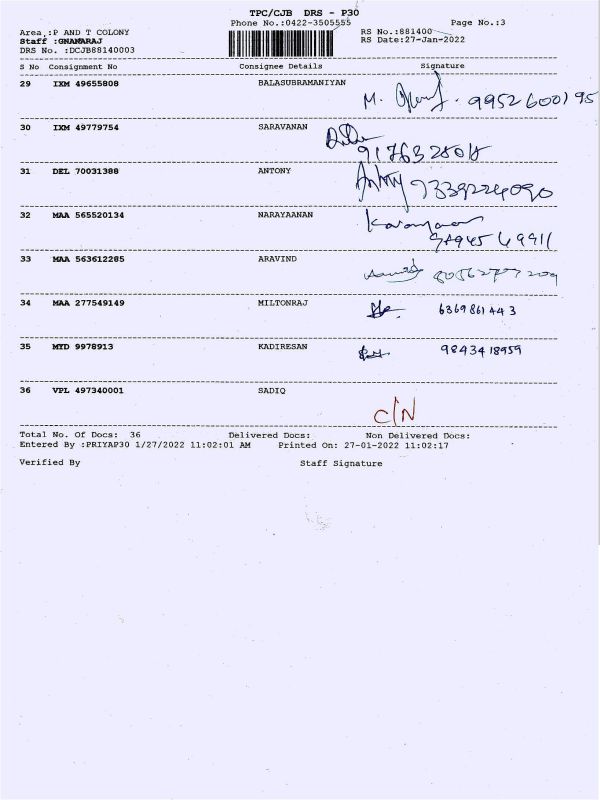 TPC/CJB DRS - P30
Phone No.:0422-3505555 Page No.:3
Area :P AND T COLONY RS No.:881400
Staff :GNANARAJ RS Date:27-Jan-2022
DRS No. :DCJB88140003
S No Consignment No Consignee Details Signature
29 IXM 49655808 BALASUBRAMANIYAN
M. 9952600195
30 IXM 49779754 SARAVANAN
31 DEL 70031388 ANTONY
Antony 7339224090
32 MAA 565520134 NARAYAANAN
33 MAA 563612285 ARAVIND
34 MAA 277549149 MILTONRAJ
6369861443
35 MTD 9978913 KADIRESAN
9843418959
36 VPL 497340001 SADIQ
C/N
Total No. Of Docs: 36 Delivered Docs: Non Delivered Docs:
Entered By :PRIYAP30 1/27/2022 11:02:01 AM Printed On: 27-01-2022 11:02:17
Verified By Staff Signature